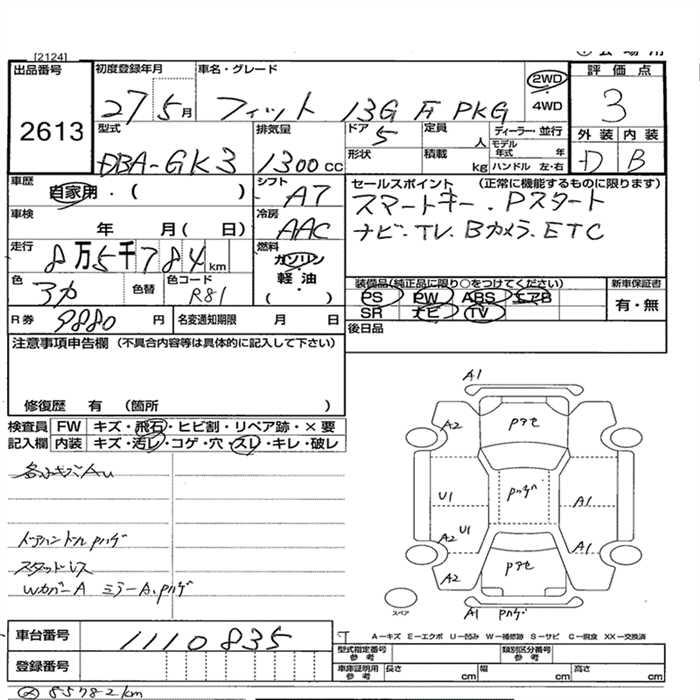 [2124]
出品番号
2613
初度登録年月
27 5月
車名・グレード
フィット 13G F PKG
2WD
4WD
評価点
3
外装 内装
D B
型式
DBA-GK3
排気量
1300cc
ドア
5
形状
定員
人
積載
kg
ディーラー・並行
モデル年式 年
ハンドル 左・右
車歴
自家用・( )
シフト
A7
車検
年 月( 日)
冷房
AAC
走行
8万5千784km
燃料
ガソリン
軽油
( )
色
色替
色コード
R81
R券
9880円
名変通知期限 月 日
セールスポイント (正常に機能するものに限ります)
スマートキー・Pスタート
ナビ・TV・Bカメラ・ETC
装備品(純正品に限り○をつけてください)
PS PW ABS エアB
SR ナビ TV
新車保証書
有・無
後日品
注意事項申告欄 (不具合内容等は具体的に記入して下さい)
修復歴 有 (箇所 )
検査員 FW キズ・飛石・ヒビ割・リペア跡・×要
記入欄 内装 キズ・汚レ・コゲ・穴・スレ・キレ・破レ
ドアハンドルPハゲ
スタッドレス
WカバーA ミラーA・Pハゲ
A1
A2
Pアセ
U1
Pハゲ
A1
U1
A2
A1
A2
Pアセ
A1 Pハゲ
スペア
A-キズ E-エクボ U-凹み W-補修跡 S-サビ C-腐食 XX-交換済
車台番号
1110835
登録番号
型式指定番号 参考
類別区分番号 参考
車庫証明用 参考
長さ cm
幅 cm
高さ cm
85782km